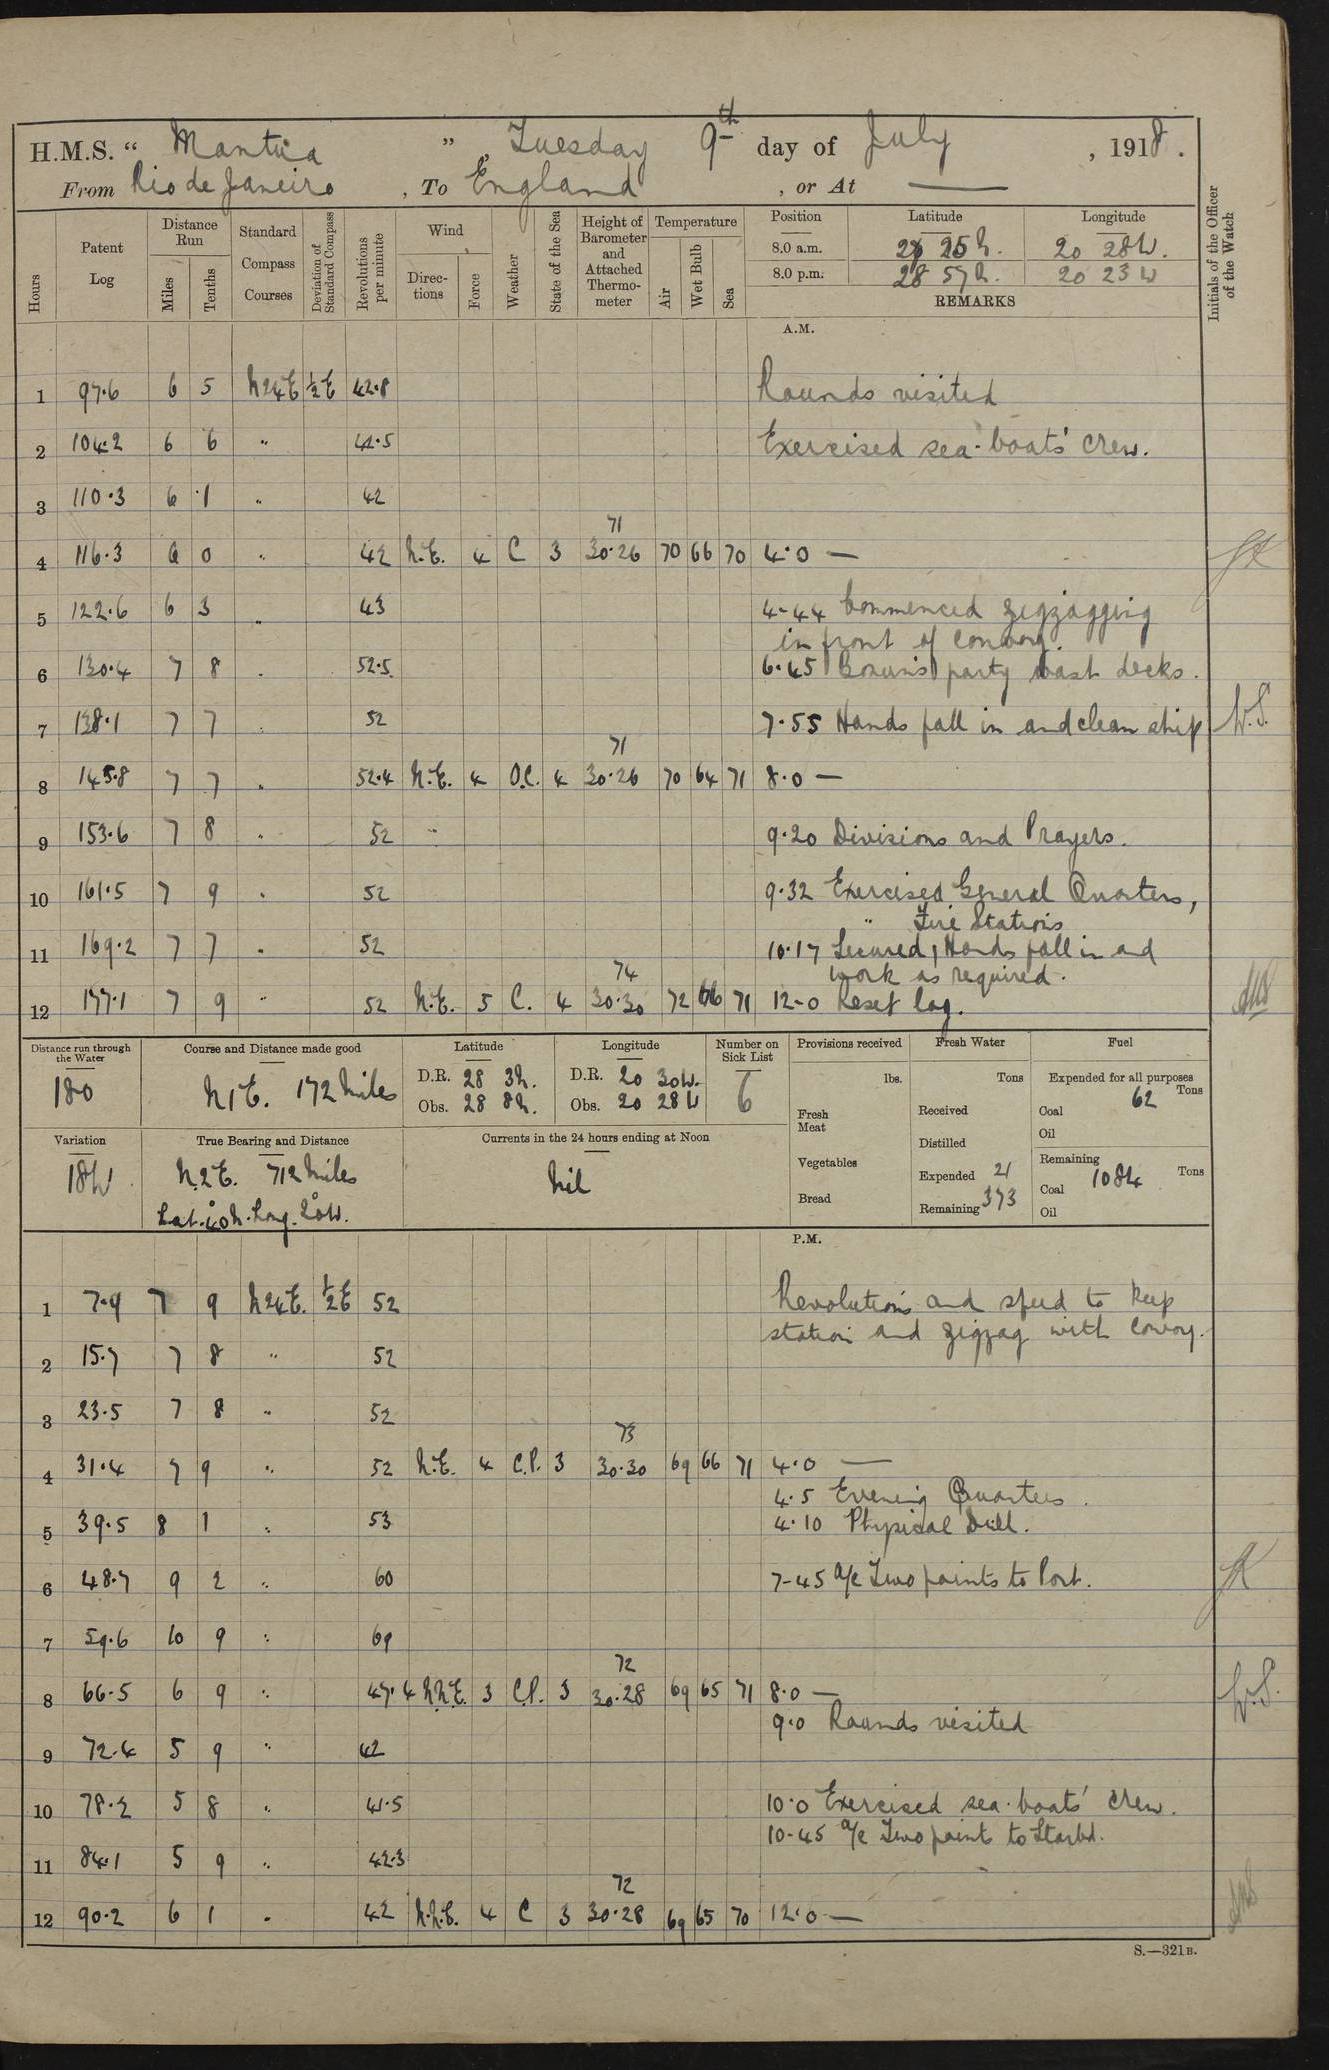 H.M.S. “ Mantua ”, Tuesday 9th day of July, 1918.
From Rio de Janeiro, To England, or At —
Hours
Patent Log
Distance Run
Miles
Tenths
Standard Compass Courses
Deviation of Standard Compass
Revolutions per minute
Wind
Directions
Force
Weather
State of the Sea
Height of Barometer and Attached Thermometer
Temperature
Air
Wet Bulb
Sea
Position Latitude Longitude
8.0 a.m. 25 N. 20 28 W.
8.0 p.m. 28 57 N. 20 23 W
REMARKS
Initials of the Officer of the Watch
A.M.
1 97.6 6 5 N24E ½E 42.8 Rounds visited
2 104.2 6 6 " 42.5 Exercised sea-boats' crew.
3 110.3 6 1 " 42
71
4 116.3 6 0 " 42 N.E. 4 C 3 30.26 70 66 70 4.0 —
5 122.6 6 3 " 43 4-44 Commenced zigzagging
in front of convoy.
6 130.4 7 8 " 52.5 6.45 Bosun's party wash decks.
7 138.1 7 7 " 52 7.55 Hands fall in and clean ship W.S.
71
8 145.8 7 7 " 52.4 N.E. 4 O.C. 4 30.26 70 64 71 8.0 —
9 153.6 7 8 " 52 " 9.20 Divisions and Prayers.
10 161.5 7 9 " 52 9.32 Exercised General Quarters,
" Fire Stations
11 169.2 7 7 " 52 10.17 Secured, Hands fall in and
work as required.
74
12 177.1 7 9 " 52 N.E. 5 C. 4 30.30 72 66 71 12-0 Reset log.
Distance run through the Water
180
Course and Distance made good
N1E. 172 Miles
Latitude
D.R. 28 3N.
Obs. 28 8N.
Longitude
D.R. 20 30W.
Obs. 20 28W
Number on Sick List
6
Provisions received
lbs.
Fresh Meat
Vegetables
Bread
Fresh Water
Tons
Received
Distilled
Expended 21
Remaining 373
Fuel
Expended for all purposes
62 Tons
Coal
Oil
Remaining
Coal 1084 Tons
Oil
Variation
18W
True Bearing and Distance
N.2E. 712 Miles
Lat. 40N. Long. 20W.
Currents in the 24 hours ending at Noon
Nil
P.M.
1 7.9 7 9 N24E. ½E 52 Revolutions and speed to keep
station and zigzag with convoy.
2 15.7 7 8 " 52
3 23.5 7 8 " 52
73
4 31.4 7 9 " 52 N.E. 4 C.P. 3 30.30 69 66 71 4.0 —
4.5 Evening Quarters.
5 39.5 8 1 " 53 4.10 Physical Drill.
6 48.7 9 2 " 60 7-45 a/c Two points to Port.
7 59.6 10 9 " 69
72
8 66.5 6 9 " 47.4 N.N.E. 3 C.P. 3 30.28 69 65 71 8.0 — W.S.
9.0 Rounds visited
9 72.4 5 9 " 42
10 78.2 5 8 " 41.5 10.0 Exercised sea-boats' crew.
10-45 a/c Two points to Starbd.
11 84.1 5 9 " 42.3
72
12 90.2 6 1 " 42 N.N.E. 4 C 3 30.28 69 65 70 12.0 —
S.—321B.